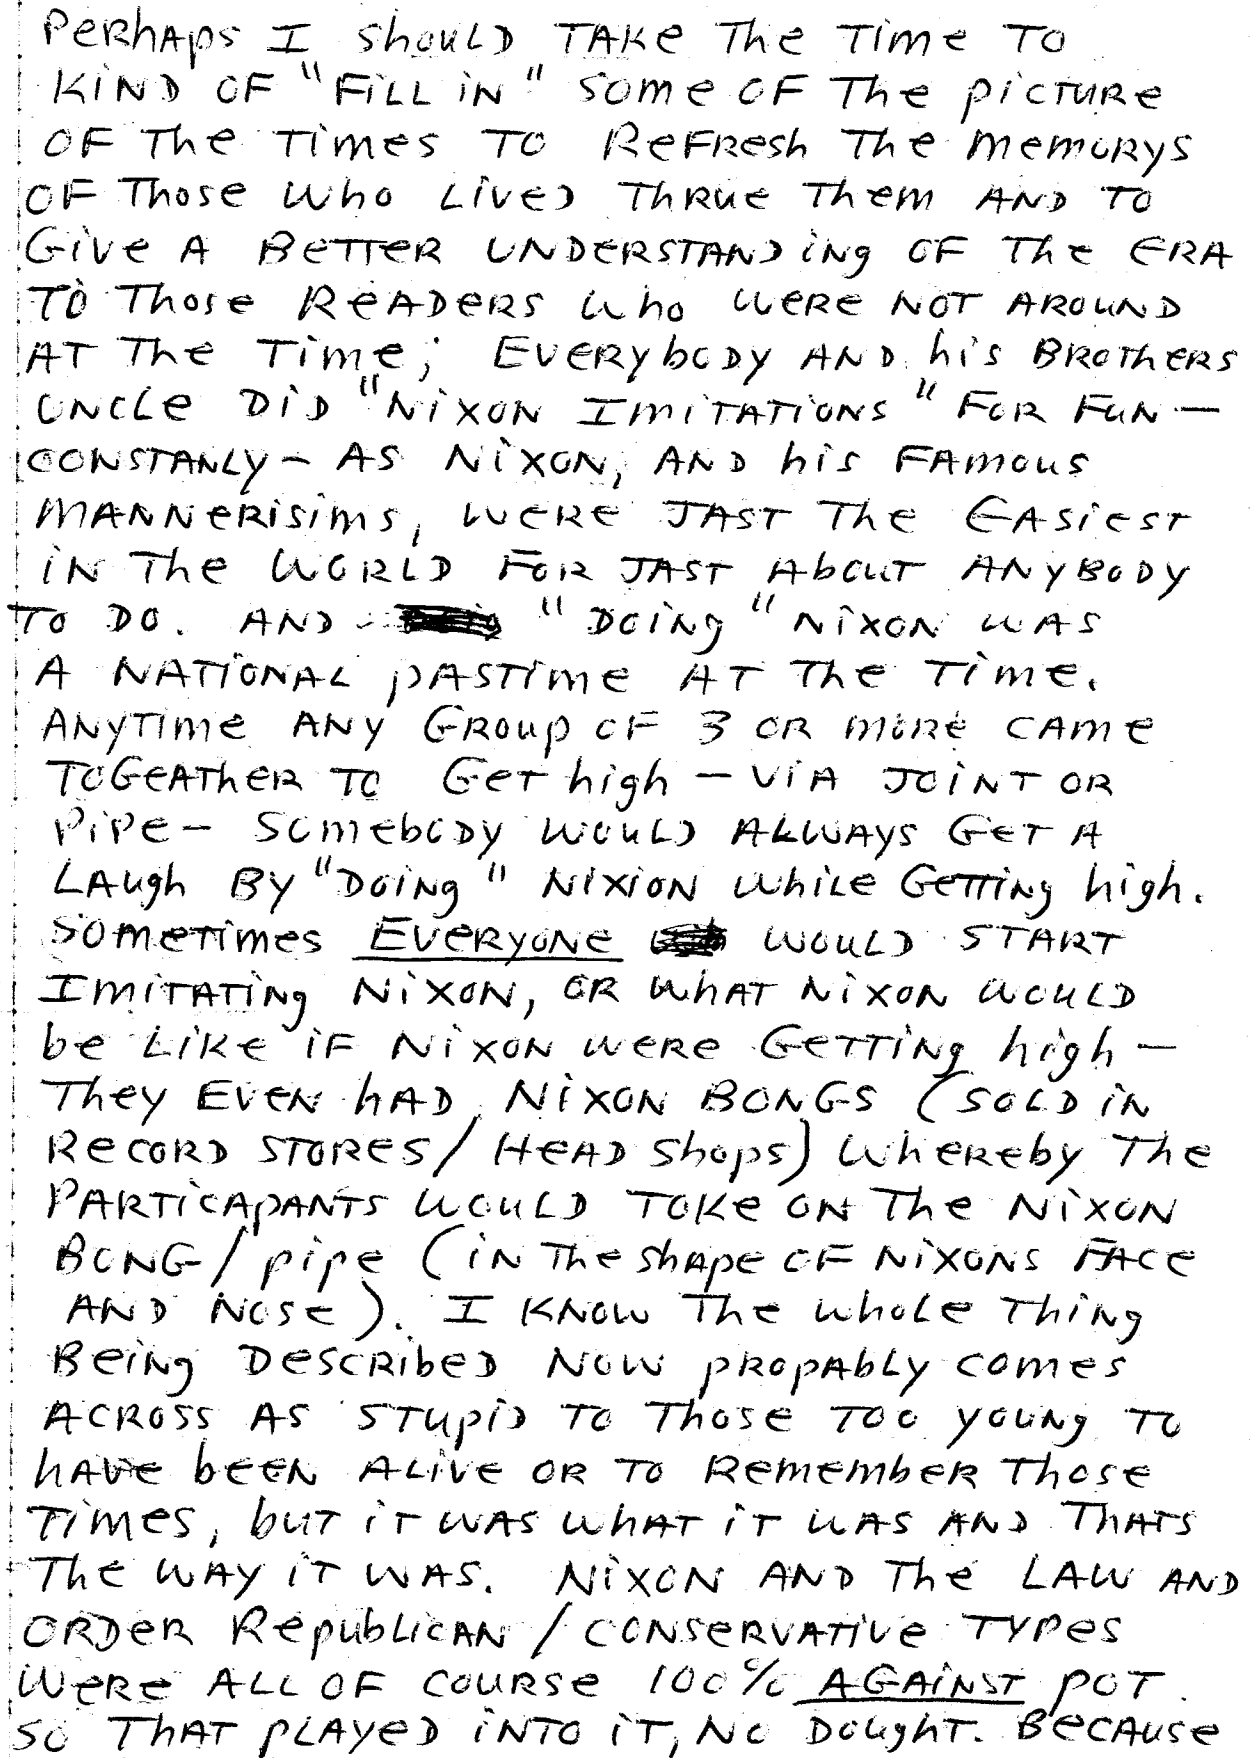 Perhaps I should take the time to
kind of "fill in" some of the picture
of the times to refresh the memorys
of those who lived thrue them and to
give a better understanding of the era
to those readers who were not around
at the time; everybody and his brothers
uncle did "Nixon imitations" for fun —
constanly — as Nixon, and his famous
mannerisims, were jast the easiest
in the world for jast about anybody
to do. And "doing" Nixon was
a national pastime at the time.
Anytime any group of 3 or more came
togeather to get high — via joint or
pipe — somebody would always get a
laugh by "doing" Nixion while getting high.
Sometimes everyone would start
imitating Nixon, or what Nixon would
be like if Nixon were getting high —
they even had Nixon bongs (sold in
record stores/head shops) whereby the
particapants would toke on the Nixon
bong/pipe (in the shape of Nixons face
and nose). I know the whole thing
being described now propably comes
across as stupid to those too young to
have been alive or to remember those
times, but it was what it was and thats
the way it was. Nixon and the law and
order Republican/conservative types
were all of course 100% against pot.
So that played into it, no dought. Because